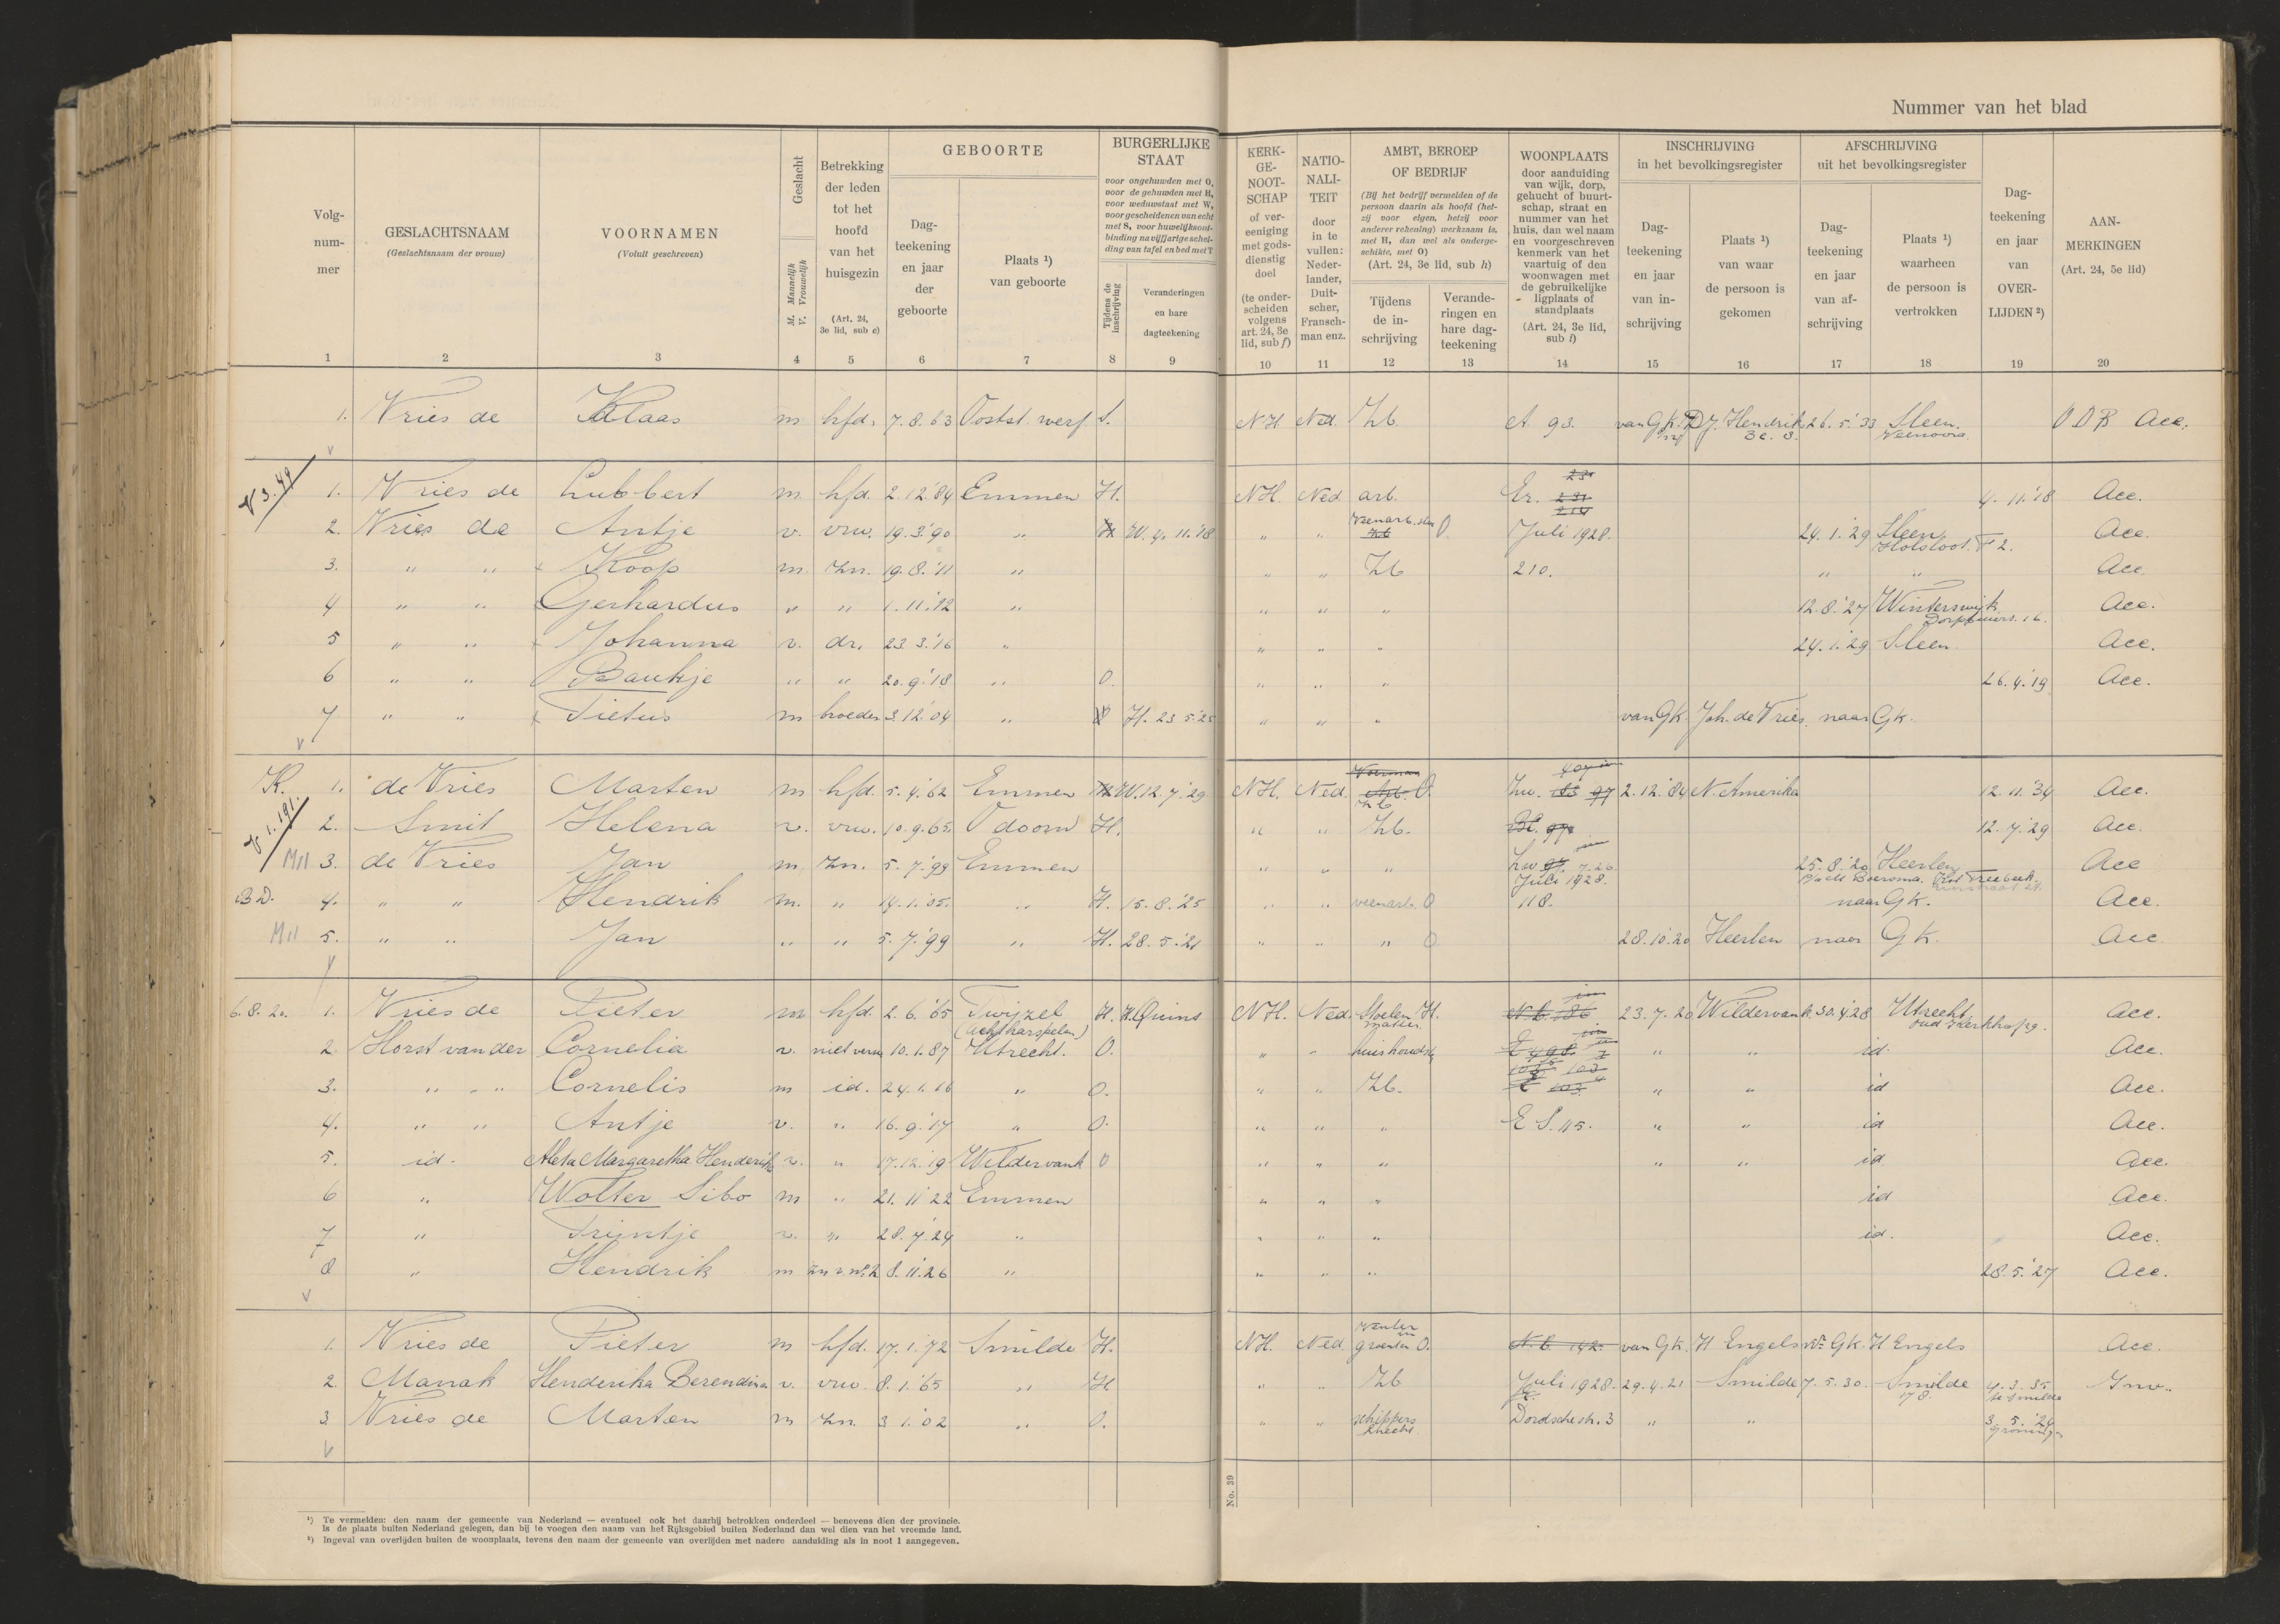 Nummer van het blad
Volg-
num-
mer
GESLACHTSNAAM
(Geslachtsnaam der vrouw)
VOORNAMEN
(Voluit geschreven)
Geslacht
M. Mannelijk
V. Vrouwelijk
Betrekking
der leden
tot het
hoofd
van het
huisgezin
(Art. 24,
3e lid, sub c)
GEBOORTE
Dag-
teekening
en jaar
der
geboorte
Plaats ¹)
van geboorte
BURGERLIJKE
STAAT
voor ongehuwden met O,
voor de gehuwden met H,
voor weduwstaat met W,
voor gescheidenen van echt
met S, voor huwelijksont-
binding na vijfjarige schei-
ding van tafel en bed met T
Tijdens de
inschrijving
Veranderingen
en hare
dagteekening
KERK-
GE-
NOOT-
SCHAP
of ver-
eeniging
met gods-
dienstig
doel
(te onder-
scheiden
volgens
art. 24, 3e
lid, sub f)
NATIO-
NALI-
TEIT
door
in te
vullen:
Neder-
lander,
Duit-
scher,
Fransch-
man enz.
AMBT, BEROEP
OF BEDRIJF
(Bij het bedrijf vermelden of de
persoon daarin als hoofd (het-
zij voor eigen, hetzij voor
anderer rekening) werkzaam is,
met H, dan wel als onderge-
schikte, met O)
(Art. 24, 3e lid, sub h)
Tijdens
de in-
schrijving
Verande-
ringen en
hare dag-
teekening
WOONPLAATS
door aanduiding
van wijk, dorp,
gehucht of buurt-
schap, straat en
nummer van het
huis, dan wel naam
en voorgeschreven
kenmerk van het
vaartuig of den
woonwagen met
de gebruikelijke
ligplaats of
standplaats
(Art. 24, 3e lid,
sub i)
INSCHRIJVING
in het bevolkingsregister
Dag-
teekening
en jaar
van in-
schrijving
Plaats ¹)
van waar
de persoon is
gekomen
AFSCHRIJVING
uit het bevolkingsregister
Dag-
teekening
en jaar
van af-
schrijving
Plaats ¹)
waarheen
de persoon is
vertrokken
Dag-
teekening
en jaar
van
OVER-
LIJDEN ²)
AAN-
MERKINGEN
(Art. 24, 5e lid)
1 2 3 4 5 6 7 8 9 10 11 12 13 14 15 16 17 18 19 20
1. Vries de Klaas m hfd. 7.8.63 Ooststwerf S. NH Ned. Zb. A 93. van Gk. J. Hendrik 26.5.'33 Sleen. ODB Acc.
1. Vries de Lubbert m hfd. 2.12.'84 Emmen H. NH. Ned. arb. Er. 4.11.'18 Acc.
2. Vries de Antje v. vrw. 19.3.'90 " H W. 4.11.'18 " " O. Juli 1928. 24.1.'29 Sleen Holsloot F 2. Acc.
3. " " Koop m zn. 19.8.'11 " " " Zb 210. " " Acc
4 " " Gerhardus " " 1.11.'12 " " " " 12.8.'27 Winterswijk Acc.
5 " " Johanna v. dr. 23.3.'16 " " " " 24.1.'29 Sleen. Acc.
6 " " Baukje " " 20.9.'18 " O. " " " 26.4.'19 Acc.
7 " " Tietus m broeder 3.12.'04 " H. 23.5.'25 " " " van Gk. Joh. de Vries. naar Gk.
K. 1. de Vries Marten m hfd. 5.4.'62 Emmen H W. 12.7.'29 NH. Ned. Zb O. Zw. 2.12.'84 N. Amerika 12.11.'34 Acc.
2. Smit Helena v. vrw. 10.9.65. Odoorn H. " " Zb. 12.7.'29 Acc.
M11 3. de Vries Jan m zn. 5.7.'99 Emmen " " " Zw Juli 1928. 25.8.'20 Heerlen Acc
B.D. 4. " " Hendrik m. " 14.1.'05. " H. 15.8.'25 " " veenarb. O 118. naar Gk. Acc.
M11 5. " " Jan " " 5.7.'99 " H. 28.5.'21 " " " O 28.10.'20 Heerlen naar Gk. Acc
6.8.20. 1. Vries de Pieter m hfd. 2.6.'65 Twijzel (Achtkarspelen) H. NH. Ned. Stoelenmatter H. 23.7.20 Wildervank. 30.4.'28 Utrecht Oud Kerkhof 29. Acc.
2. Horst van der Cornelia v. niet verw 10.1.87 Utrecht. O. " " huishoudst " " id. Acc.
3. " " Cornelis m id. 24.1.16 " O. " " Zb. " " id Acc.
4. " " Antje v. " 16.9.'17 " O. " " " E S. 115. " " id Acc.
5. id. Aleta Margaretha Henderika v. " 17.12.'19 Wildervank O " " " " " id Acc.
6 " Wolter Sibo m " 21.11.22 Emmen " " " id Acc.
7 " Trijntje v. " 28.7.'24 " " " " id. Acc.
8 " Hendrik m zn v. no. 2 8.11.26 " " " " 28.5.'27 Acc.
1. Vries de Pieter m hfd. 17.1.'72 Smilde H. NH. Ned venter in groenten O. N.B. 142. van Gk. H Engels nr Gk. H Engels Acc.
2. Manak Henderika Berendina v. vrw. 8.1.'65 " H " " Zb Juli 1928. 29.4.21 Smilde 7.5.30. Smilde 178. 4.3.35 te Smilde Inw.
3 Vries de Marten m zn. 3.1.'02 " O. " " schippersknecht Dordschestr. 3 " " 3.5.'24 Groningen
No. 39
¹) Te vermelden: den naam der gemeente van Nederland — eventueel ook het daarbij betrokken onderdeel — benevens dien der provincie.
Is de plaats buiten Nederland gelegen, dan bij te voegen den naam van het Rijksgebied buiten Nederland dan wel dien van het vreemde land.
²) Ingeval van overlijden buiten de woonplaats, tevens den naam der gemeente van overlijden met nadere aanduiding als in noot 1 aangegeven.